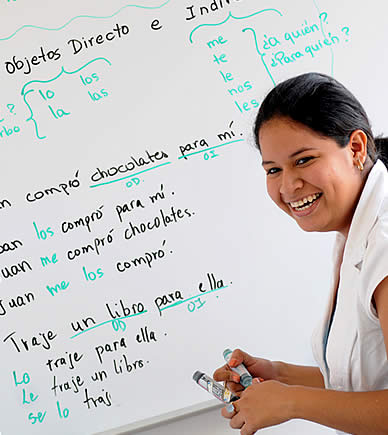 Objetos Directo e Indi
me
te
le
nos
les
¿a quién?
¿Para quién?
lo los
la las
?
rbo
n compró chocolates para mí.
OD OI
uan los compró para mí.
Juan me compró chocolates.
Juan me los compró.
Traje un libro para ella.
OD OI
Lo traje para ella.
Le traje un libro.
se lo traj